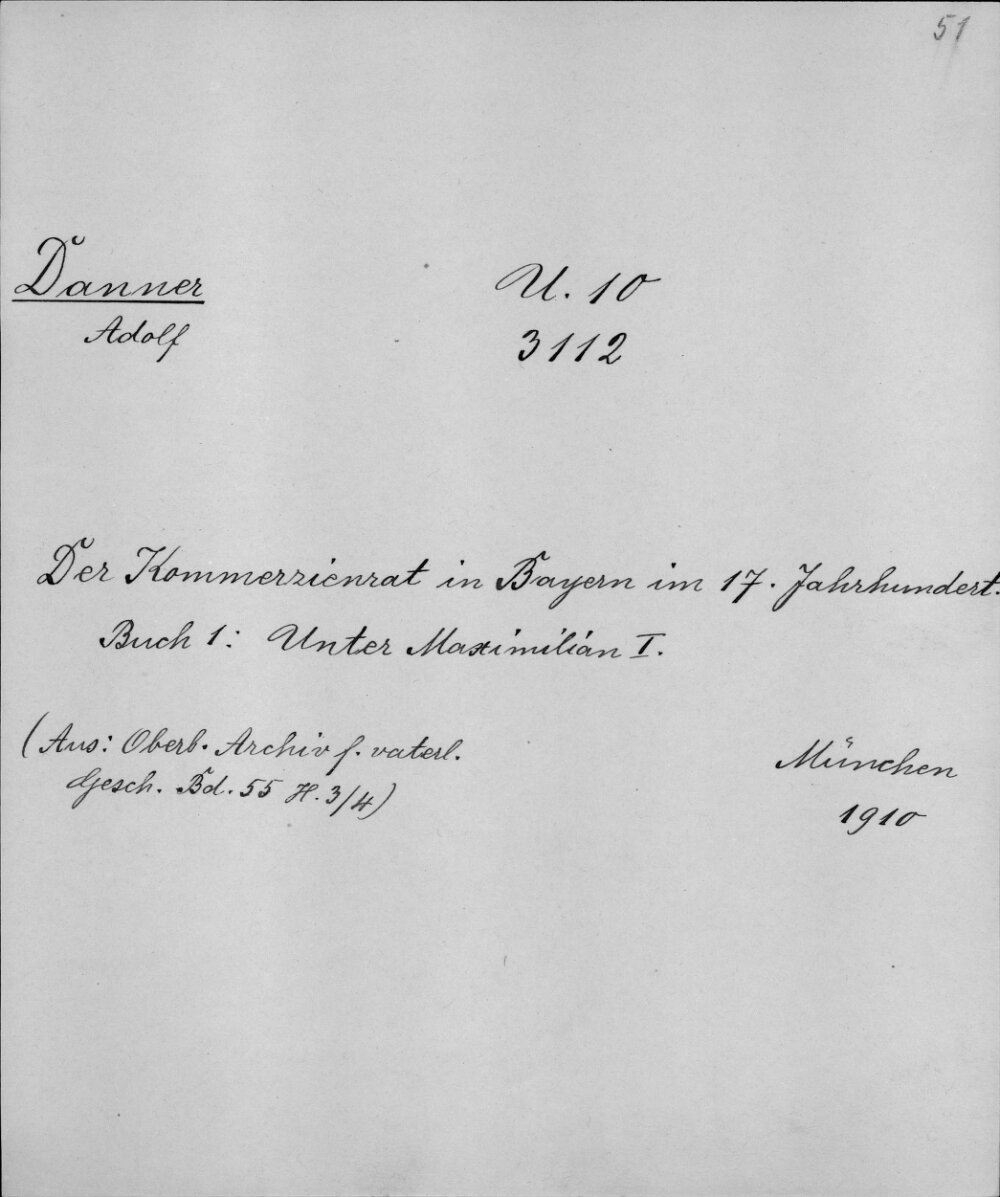 51
Danner
Adolf
U. 10
3112
Der Kommerzienrat in Bayern im 17. Jahrhundert.
Buch 1: Unter Maximilian I.
(Aus: Oberb. Archiv f. vaterl.
Gesch. Bd. 55 H. 3/4)
München
1910